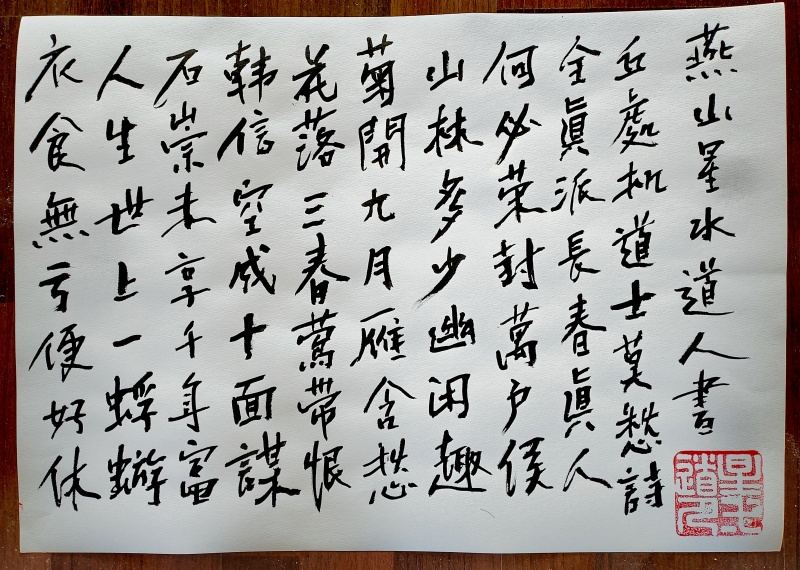 衣食無亏便好休
人生世上一蜉蝣
石崇未享千年富
韩信空成十面謀
花落三春莺帶恨
菊開九月雁含愁
山林多少幽闲趣
何必荣封萬户侯
全眞派長春眞人
丘處机道士莫愁詩
燕山星水道人書
星水道人